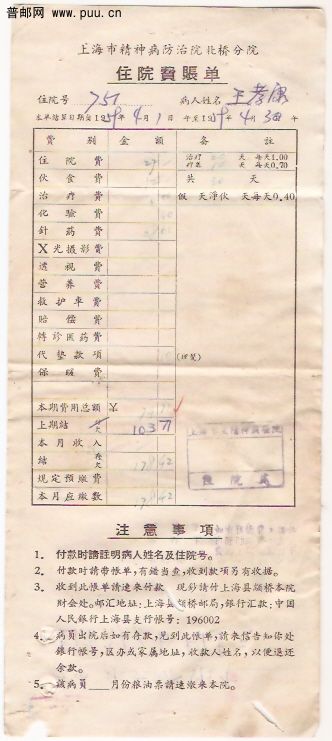 普邮网 www.puu.cn
上海市精神病防治院北桥分院
住院費賬单
住院号 751 病人姓名 王孝康
本单結算日期自1959年4月1日 午至1959年4月30日 午
費別 金額 备註
住院費 治疗 天 每天1.00
天 每天0.70
伙食費 共 天
治疗費 假 天淨伙 天每天0.40
化驗費
針药費
X光攝影費
透視費
营养費
救护車費
賠偿費
轉診医药費
代垫款項
保暖費
本期費用总額 ¥
上期結欠 103 71
本月收入
結欠存 42
規定預繳費
本月应繳数 42
上海市立精神病医院
注意事項
1. 付款时請註明病人姓名及住院号。
2. 付款时請带帐单，有錯当查，收到款項另有收据。
3. 收到此帐单請速来付款 現鈔請付上海县顓桥本院
財会处。邮汇地址：上海县顓桥邮局，銀行汇款：中国
人民銀行上海县支行帐号：196002
4. 病員出院后如有存款，見到此帐单，請来信告知你处
銀行帐号，区办或家属地址，收款人姓名，以便退还
余款。
5. 該病員 月份粮油票請速缴来本院。